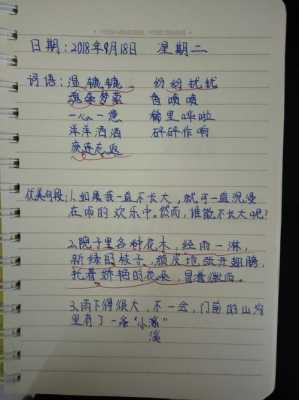 日期:2018年9月18日 星期二
词语:湿辘辘 纷纷扰扰
魂牵梦萦 香喷喷
一心一意 稀里哗啦
洋洋洒洒 砰砰作响
流连忘返
优美句段:1.如果我一直不长大,就可一直沉浸
在雨的欢乐中。然而,谁能不长大呢?
2.院子里各种花木,经雨一淋,
新绿的枝子,顽皮地张开翅膀,
托着娇艳的花朵,冒着微雨。
3.雨下得很大,不一会,门前的山沟
里有了一条“小溪”
溪